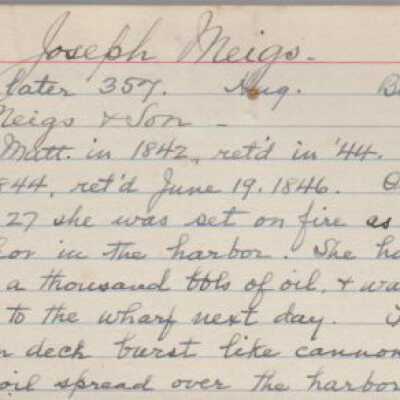 Joseph Meigs.
later 357. Aug. B
Meigs & Son
Matt. in 1842, ret'd in '44.
844, ret'd June 19. 1846. O
27 she was set on fire as
hor in the harbor. She ha
a thousand bbls of oil, & wa
to the wharf next day.
n deck burst like cannon
oil spread over the harbor